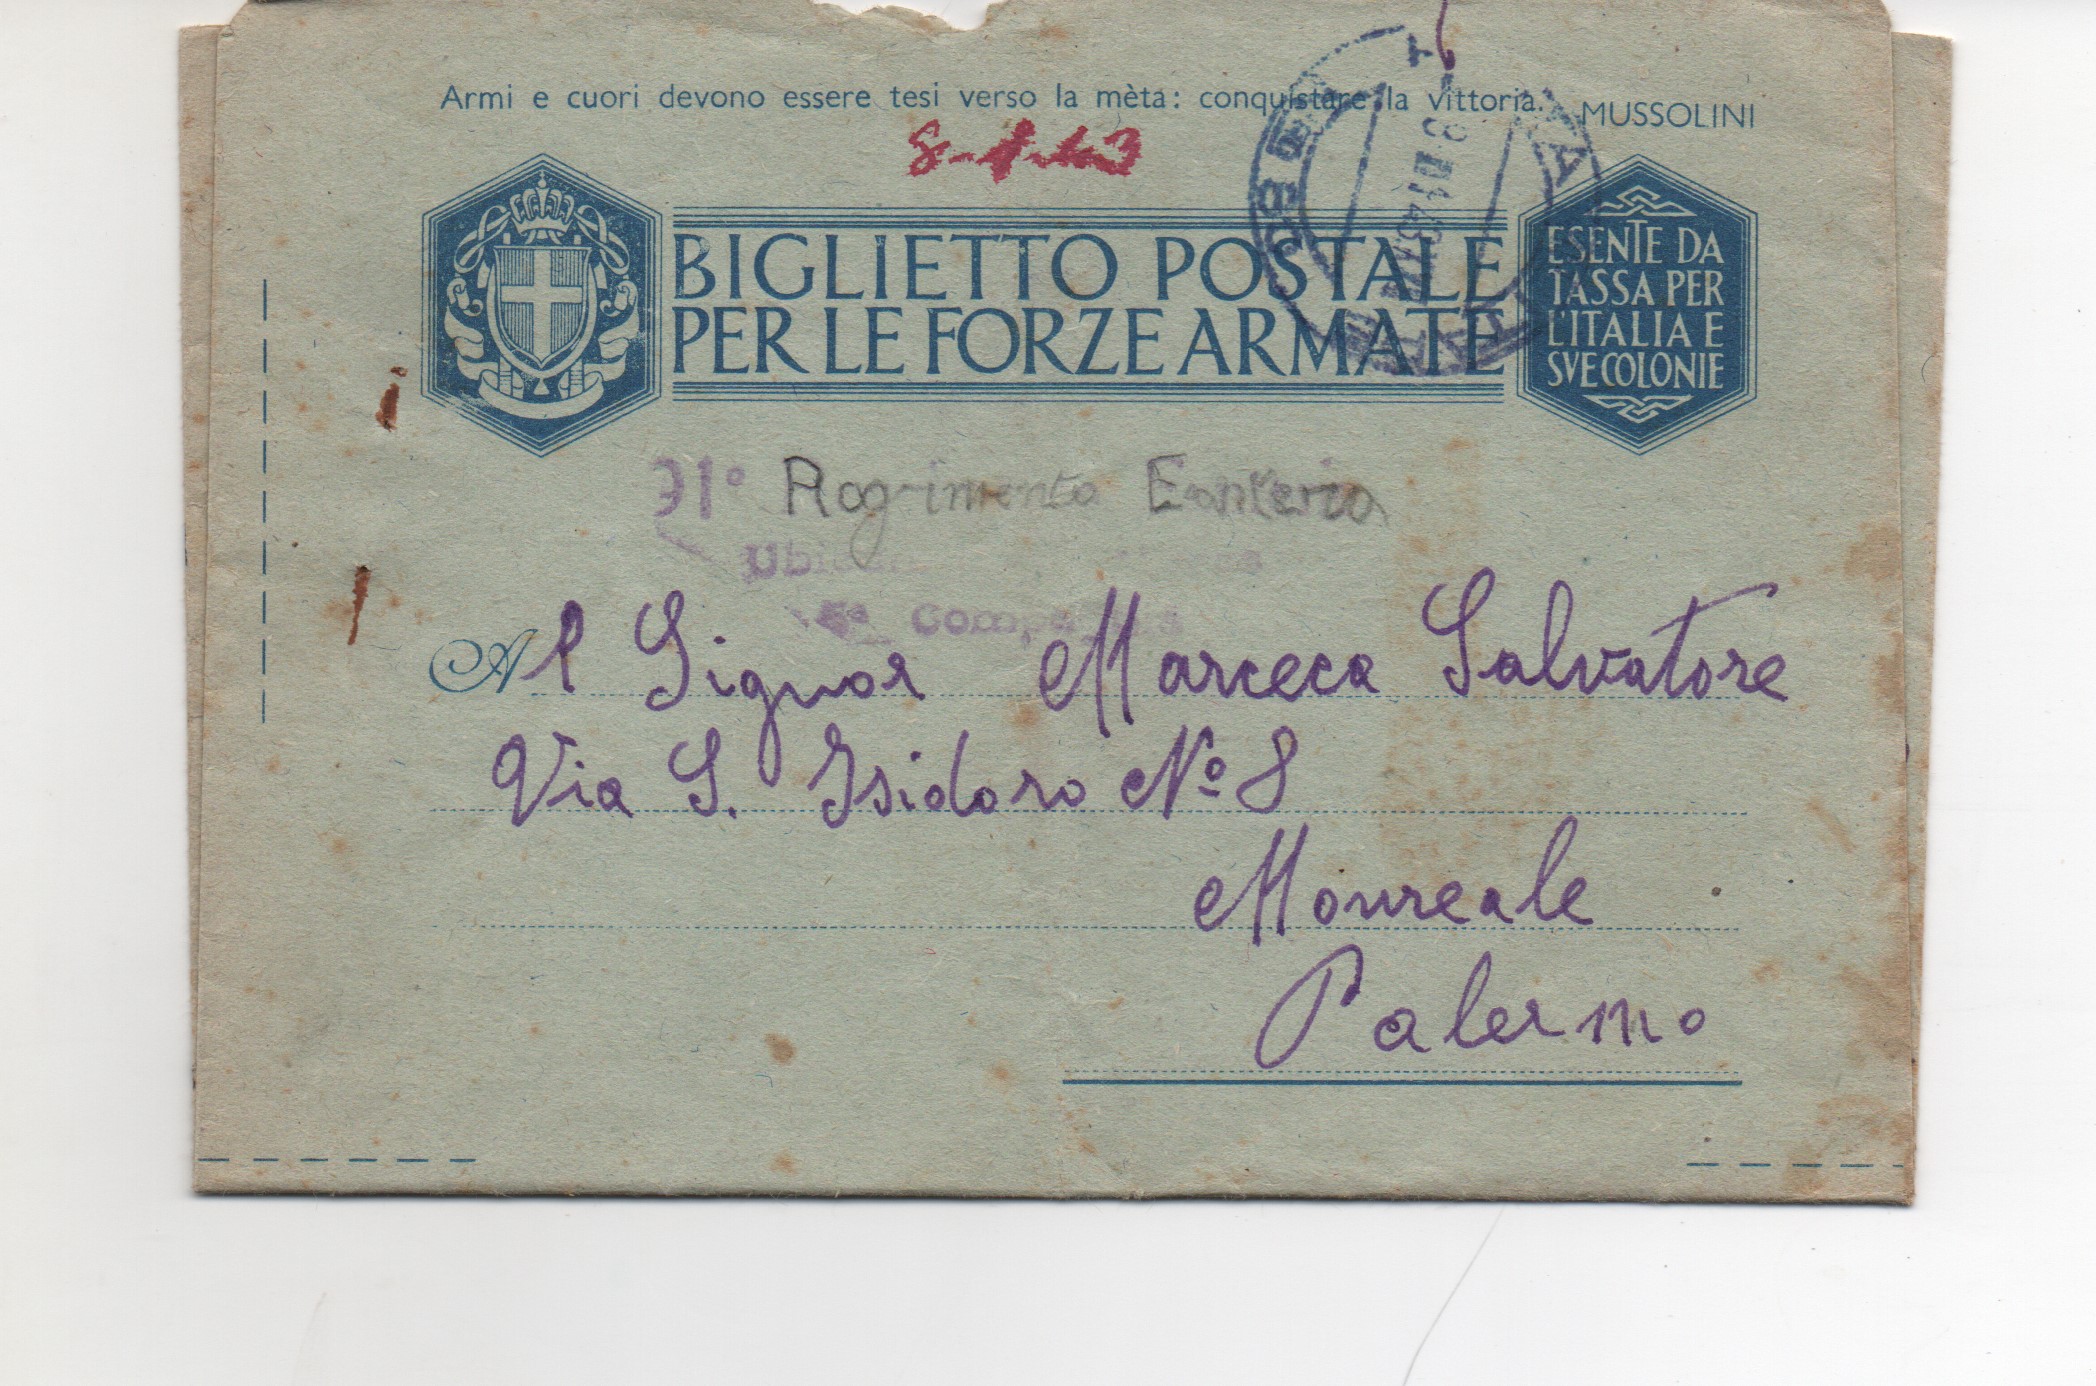 Armi e cuori devono essere tesi verso la mèta: conquistare la vittoria.
MUSSOLINI
BIGLIETTO POSTALE
PER LE FORZE ARMATE
ESENTE DA
TASSA PER
L'ITALIA E
SVE COLONIE
Al Signor Marceca Salvatore
Via S. Isidoro Nº 8
Monreale
Palermo